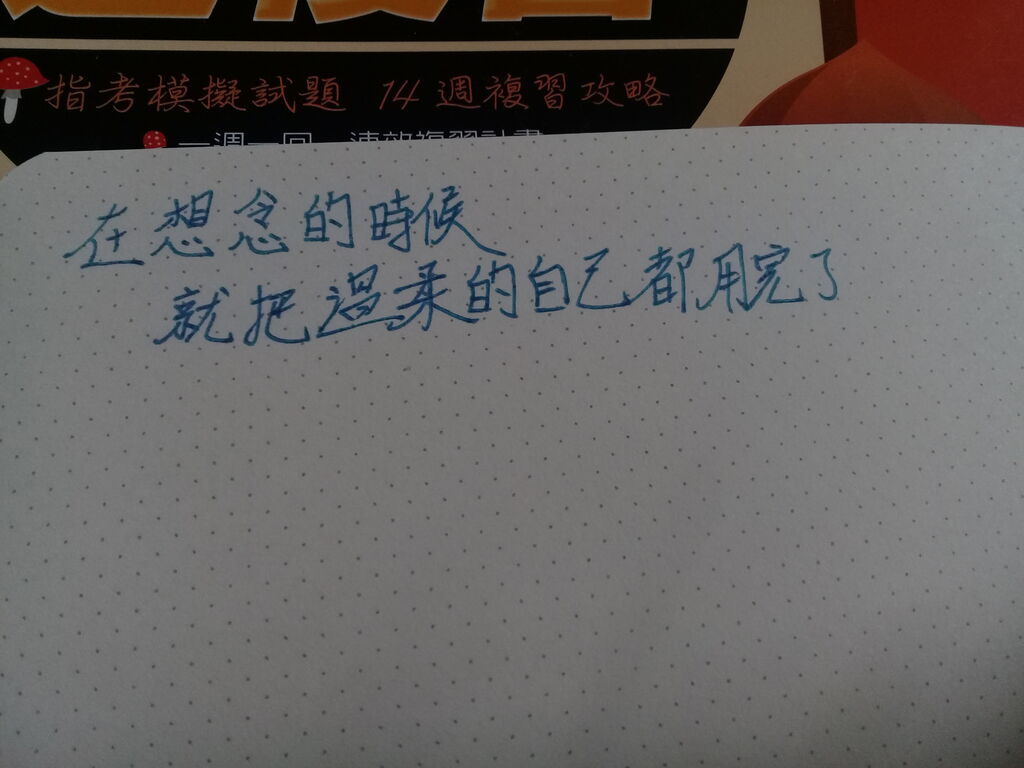 指考模擬試題 14週複習攻略
一週一回 速效複習計畫
在想念的時候
就把溫柔的自己都用完了